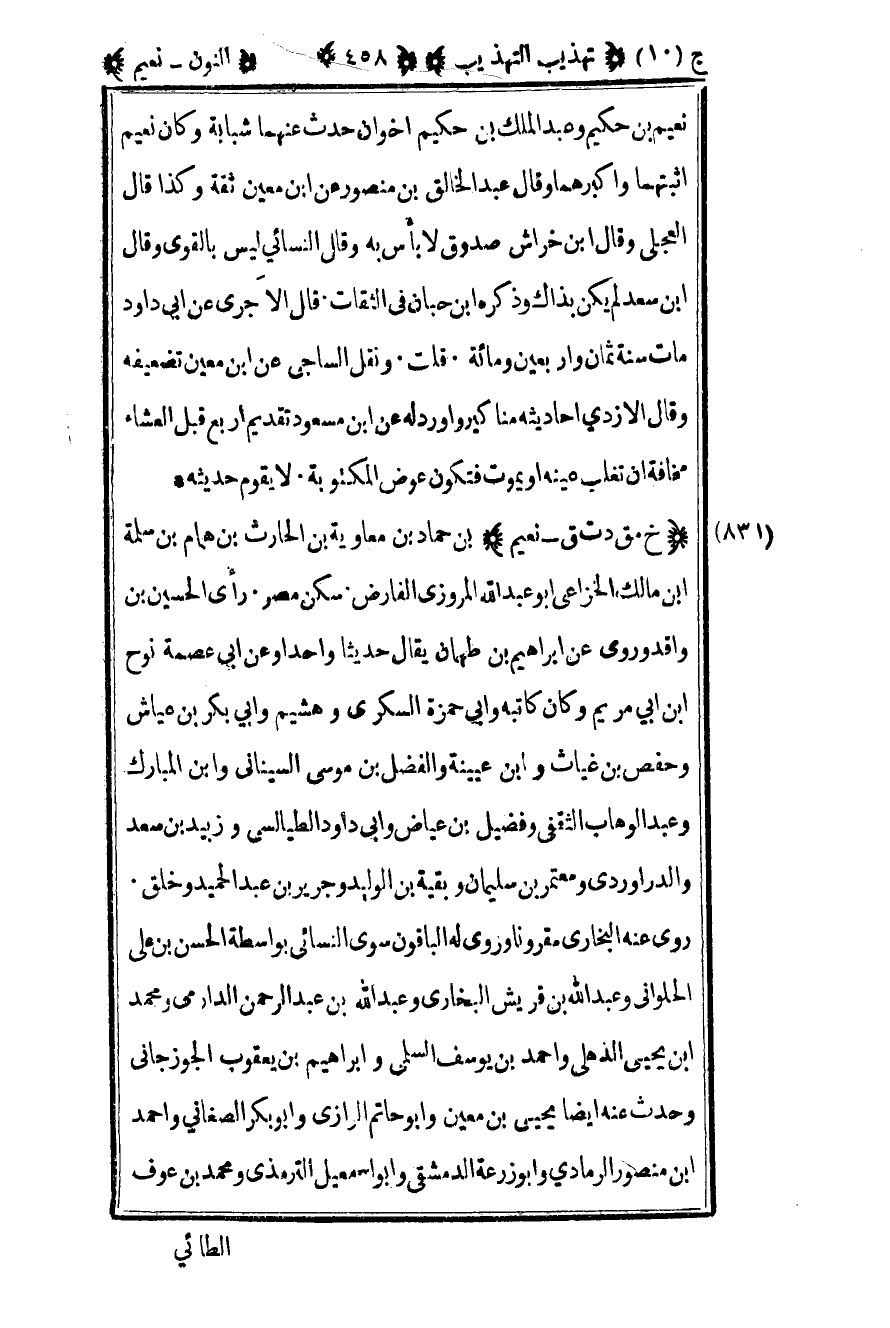 ج (١٠) ﴿ تهذيب التهذيب ﴾ ﴿ ٤٥٨ ﴾ ﴿ النون ـ نعيم ﴾
نعيم بن حكيم وعبد الملك بن حكيم اخوان حدث عنهما شبابة وكان نعيم
اثبتهما واكبرهما وقال عبد الخالق بن منصور عن ابن معين ثقة وكذا قال
العجلى وقال ابن خراش صدوق لا بأس به وقال النسائي ليس بالقوى وقال
ابن سعد لم يكن بذاك وذكره ابن حبان فى الثقات · قال الآجرى عن ابي داود
مات سنة ثمان واربعين ومائة · قلت · ونقل الساجى عن ابن معين تضعيفه
وقال الازدي احاديثه مناكير واورد له عن ابن مسعود تقديم اربع قبل العشاء
مخافة ان تغلب عينه او يموت فتكون عوض المكتوبة · لا يقوم حديثه *
(٨٣١) ﴿ خ مق د ت ق ـ نعيم ﴾ بن حماد بن معاوية بن الحارث بن همام بن سلمة
ابن مالك الخزاعى ابو عبد الله المروزى الفارض · سكن مصر · رأى الحسين بن
واقد وروى عن ابراهيم بن طهمان يقال حديثا واحدا وعن ابي عصمة نوح
ابن ابي مريم وكان كاتبه وابي حمزة السكرى و هشيم وابي بكر بن عياش
وحفص بن غياث و ابن عيينة والفضل بن موسى السينانى وابن المبارك
وعبد الوهاب الثقفى وفضيل بن عياض وابى داود الطيالسي و زبيد بن سعد
والدراوردى ومعتمر بن سليمان و بقية بن الوليد وجرير بن عبد الحميد وخلق ·
روى عنه البخارى مقرونا وروى له الباقون سوى النسائى بواسطة الحسن بن على
الحلوانى وعبد الله بن قريش البخارى وعبد الله بن عبد الرحمن الدارمى ومحمد
ابن يحيى الذهلى واحمد بن يوسف السلمى و ابراهيم بن يعقوب الجوزجانى
وحدث عنه ايضا يحيى بن معين وابو حاتم الرازى وابو بكر الصغاني واحمد
ابن منصور الرمادي وابو زرعة الدمشقى وابو اسمعيل الترمذى ومحمد بن عوف
الطائي